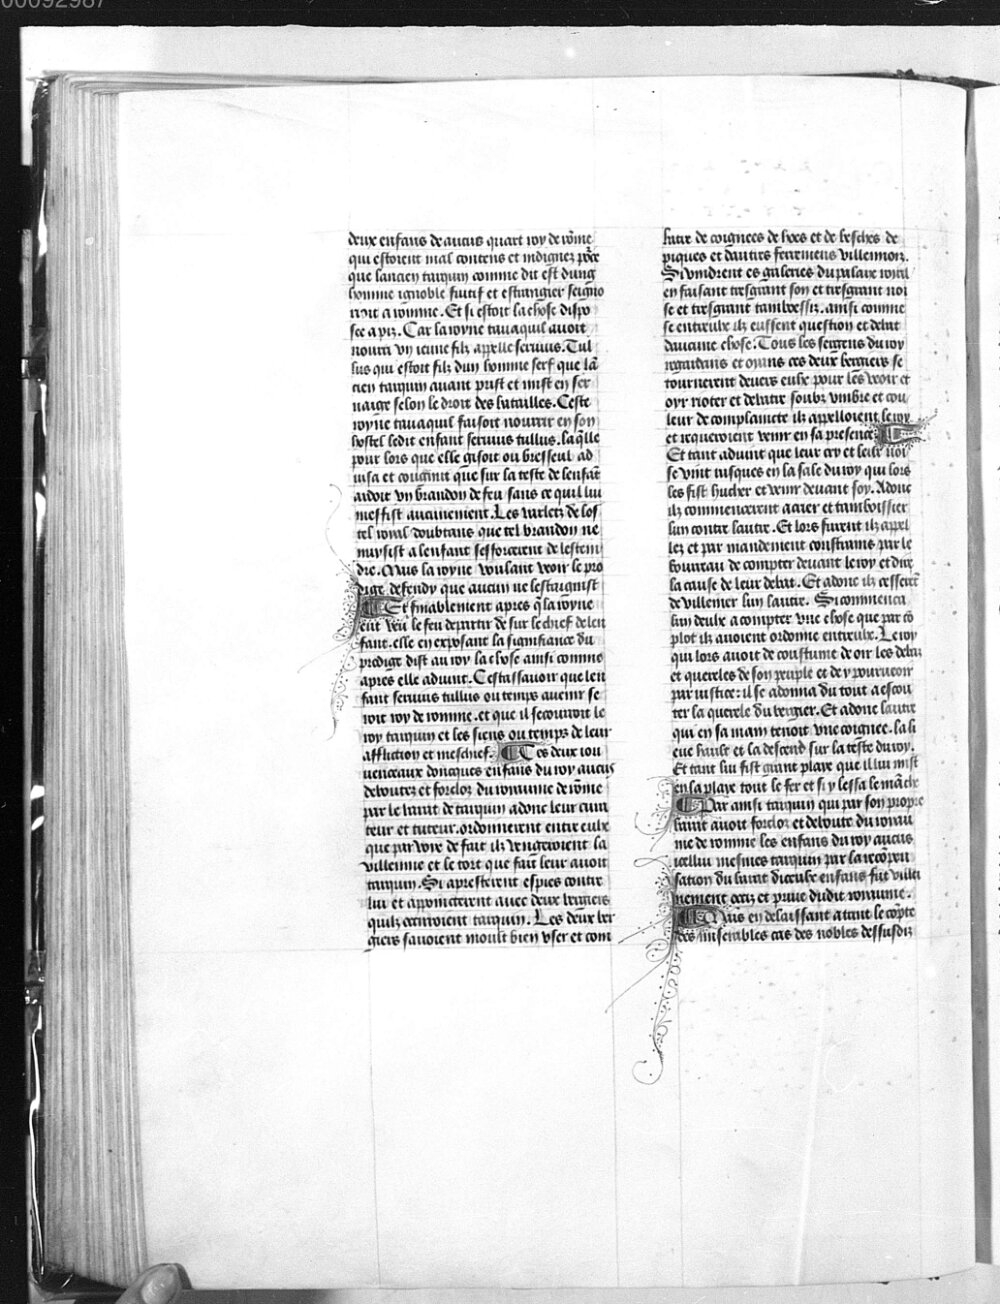 00092987
deux enfans de ancus quart roy de rõme
qui estoient mal contens et indignez põce
que lancien tarquin comme dit est dung
homme ignoble fuitif et estrangier seigno
rioit a romme. Et si estoit la chose dispo
see a piz. Car la royne tanaquil auoit
nourri vn ieune filz appelle seruius. Tul
lus qui estoit filz dun homme serf que lã
cien tarquin auant prist et mist en ser
uaige selon le droit des batailles. Ceste
royne tanaquil faisoit nourrir en son
hostel ledit enfant seruius tullus. laq̃lle
pour lors que elle gisoit ou bresseul ad
uisa et congnut que sur la teste de lenfãt
ardoit vn brandon de feu sans ce quil lui
mesfist aucunement. Les varletz de los
tel royal doubtans que tel brandon ne
nuysist a lenfant sefforcerent de lestein
dre. Mais la royne voulant veoir le pro
dige defendy que aucun ne lestaignist
Et finablement apres q̃ la royne
eut veu le feu departir de sur le chief de len
fant. elle en exposant la signifiance du
prodige dist au roy la chose ainsi comme
apres elle aduint. Cestassauoir que len
fant seruius tullius ou temps auenir se
roit roy de romme. et que il secourroit le
roy tarquin et les siens ou temps de leur
affliction et meschief. Ces deux iou
uenceaux doncques enfans du roy ancus
deboutez et forcloz du royaume de rõme
par le barat de tarquin adonc leur cura
teur et tuteur. ordonnerent entre eulx
que par voye de fait ilz vengeroient la
villennie et le tort que fait leur auoit
tarquin. Si apresterent espies contre
lui et appointerent auec deux bergiers
quilz occiroient tarquin. Les deux ber
giers sauoient moult bien vser et com
batre de coignees de hoes et de besches de
piques et dautres ferremens villennoiz.
Si vindrent es galeries du palaix royal
en faisant tresgrant son et tresgrant noi
se et tresgrant tambussiz. ainsi comme
se entreulx ilz eussent question et debat
daucune chose. Tous les sergens du roy
regardans et oyans ces deux bergiers se
tournerent deuers eulx pour les veoir et
oyr rioter et debatre soubz vmbre et cou
leur de complaincte ilz appelloient le roy
et requeroient venir en sa presence
Et tant aduint que leur cry et leur noi
se vint iusques en la sale du roy qui lors
les fist hucher et venir deuant soy. Adonc
ilz commencerent a crier et tamboissier
lun contre lautre. Et lors furent ilz appel
lez et par mandement constrains par le
bourreau de compter deuant le roy et dire
la cause de leur debat. Et adonc ilz cesserẽt
de villener lun lautre. Si commenca
lun deulx a compter vne chose que par cõ
plot ilz auoient ordonne entreulx. Le roy
qui lors auoit de coustume de oir les debaz
et quereles de son peuple et de y pourueoir
par iustice: il se adonna du tout a escou
ter la querele du bergier. Et adonc lautre
qui en sa main tenoit vne coignee. la li
eue hault et la descend sur la teste du roy.
Et tant lui fist grant playe que il lui mist
en la playe tout le fer et si y lessa le mãche
Par ainsi tarquin qui par son propre
barat auoit forcloz et deboute du royau
me de romme les enfans du roy ancus
icellui mesmes tarquin par la recõpen
sation du barat diceulx enfans fut villei
nement occiz et priue dudit royaume.
Mais en delaissant atant le cõpte
des miserables cas des nobles dessusdiz